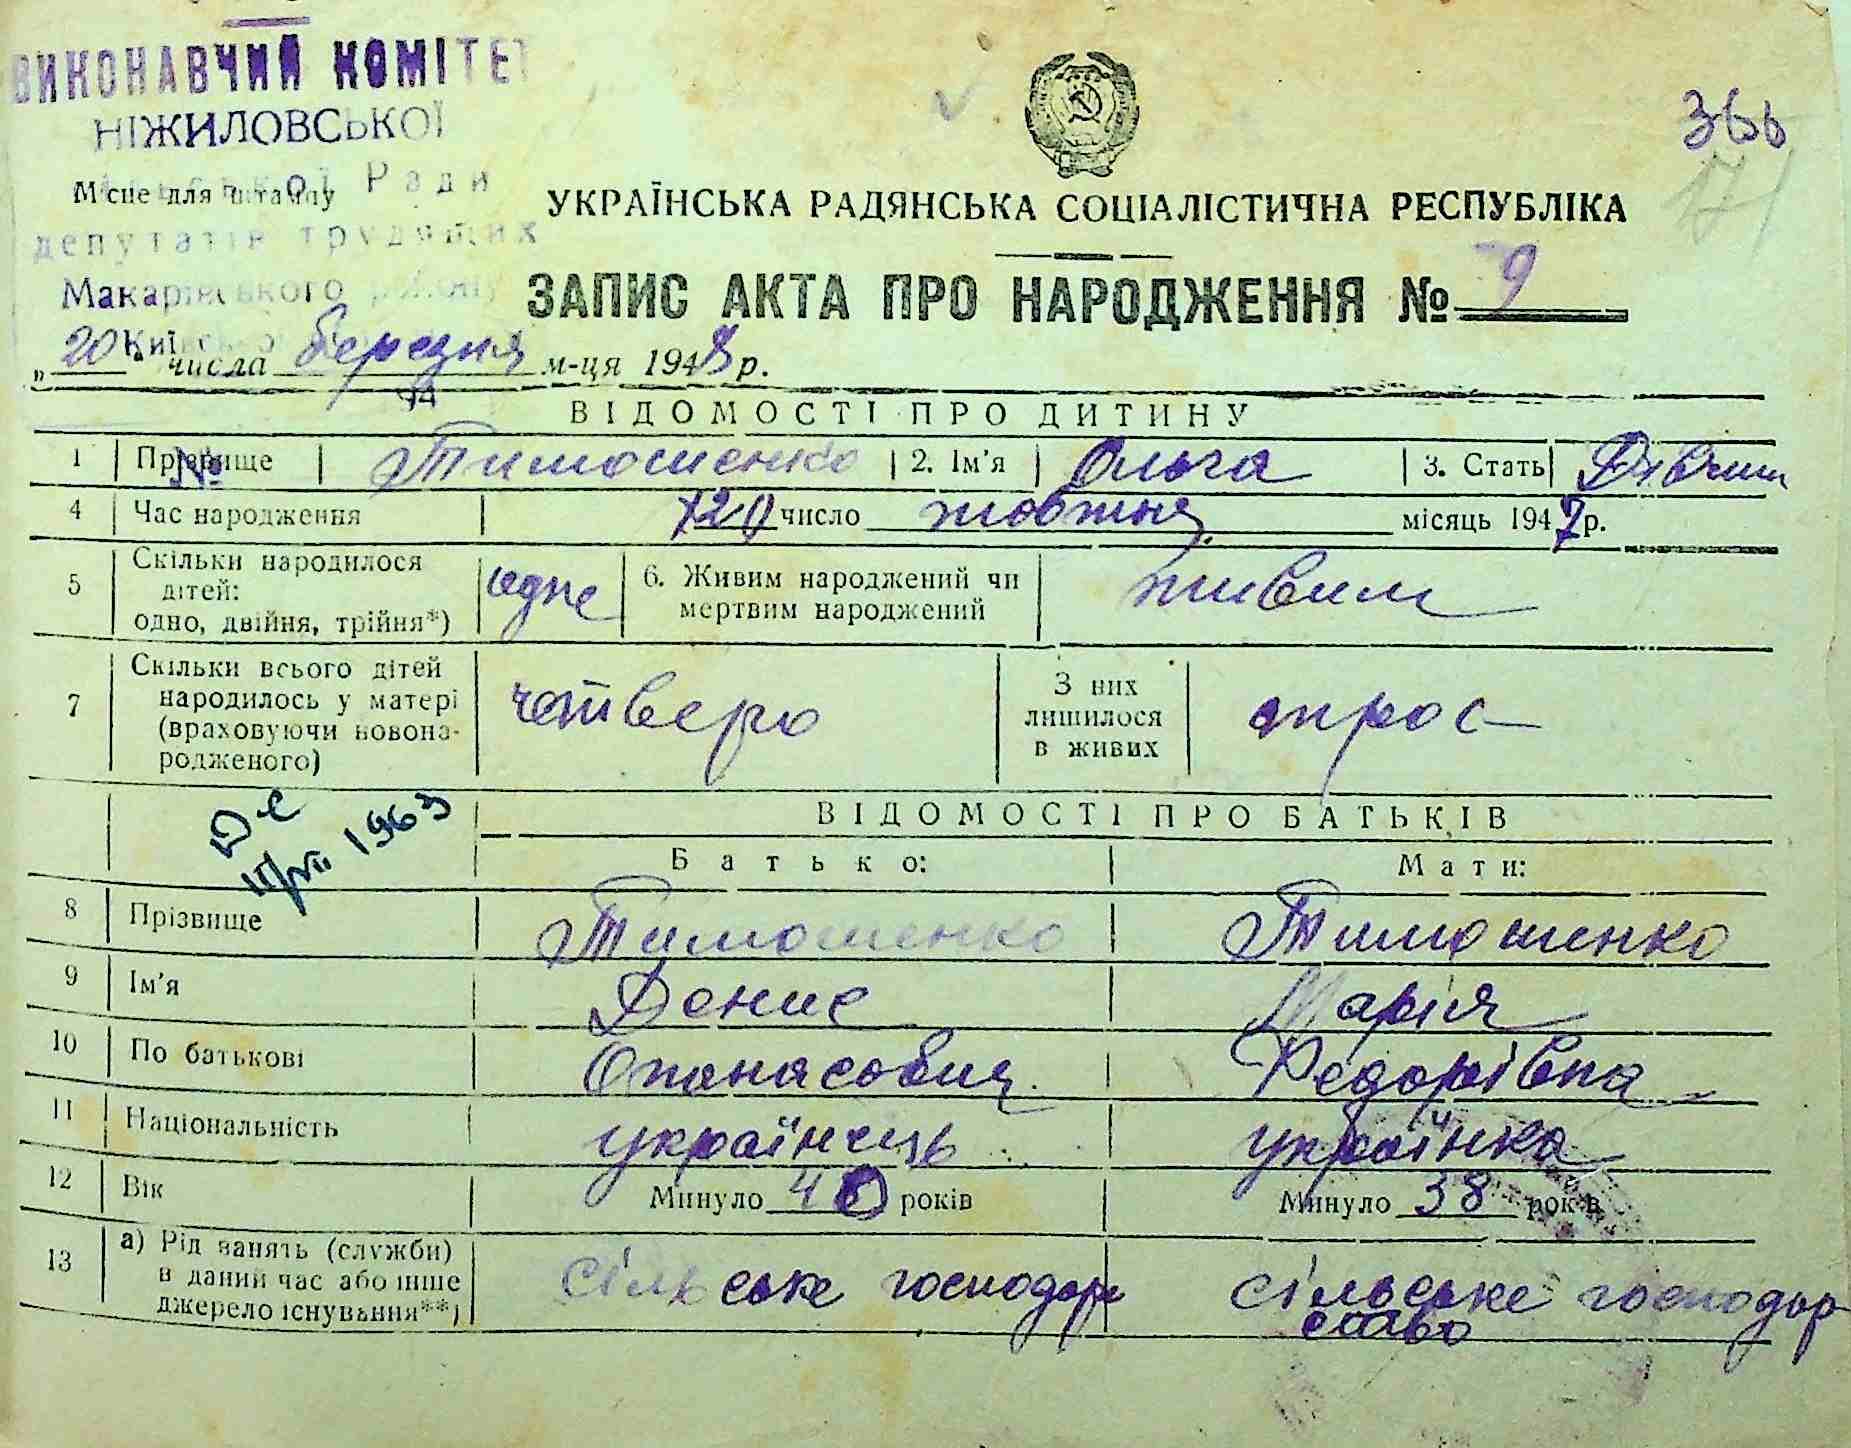 ВИКОНАВЧИЙ КОМІТЕТ
НІЖИЛОВСЬКОЇ
Ради
Місце для штампу
депутатів трудящих
Макарівського району
366
171
УКРАЇНСЬКА РАДЯНСЬКА СОЦІАЛІСТИЧНА РЕСПУБЛІКА
ЗАПИС АКТА ПРО НАРОДЖЕННЯ № 9
„20“ числа березня м-ця 1948 р.
ВІДОМОСТІ ПРО ДИТИНУ
1 Прізвище Тимошенко 2. Ім'я Ольга 3. Стать Дівчин
№
4 Час народження 20 число жовтня місяць 1947 р.
5 Скільки народилося дітей: одно, двійня, трійня*) одне 6. Живим народжений чи мертвим народжений живим
7 Скільки всього дітей народилось у матері (враховуючи новонародженого) четверо З них лишилося в живих троє
1963
ВІДОМОСТІ ПРО БАТЬКІВ
Батько: Мати:
8 Прізвище Тимошенко Тимошенко
9 Ім'я Денис Марія
10 По батькові Опанасович Федорівна
11 Національність українець українка
12 Вік Минуло 40 років Минуло 38 років
13 а) Рід занять (служби) в даний час або інше джерело існування**) сільське господар сільське господарство